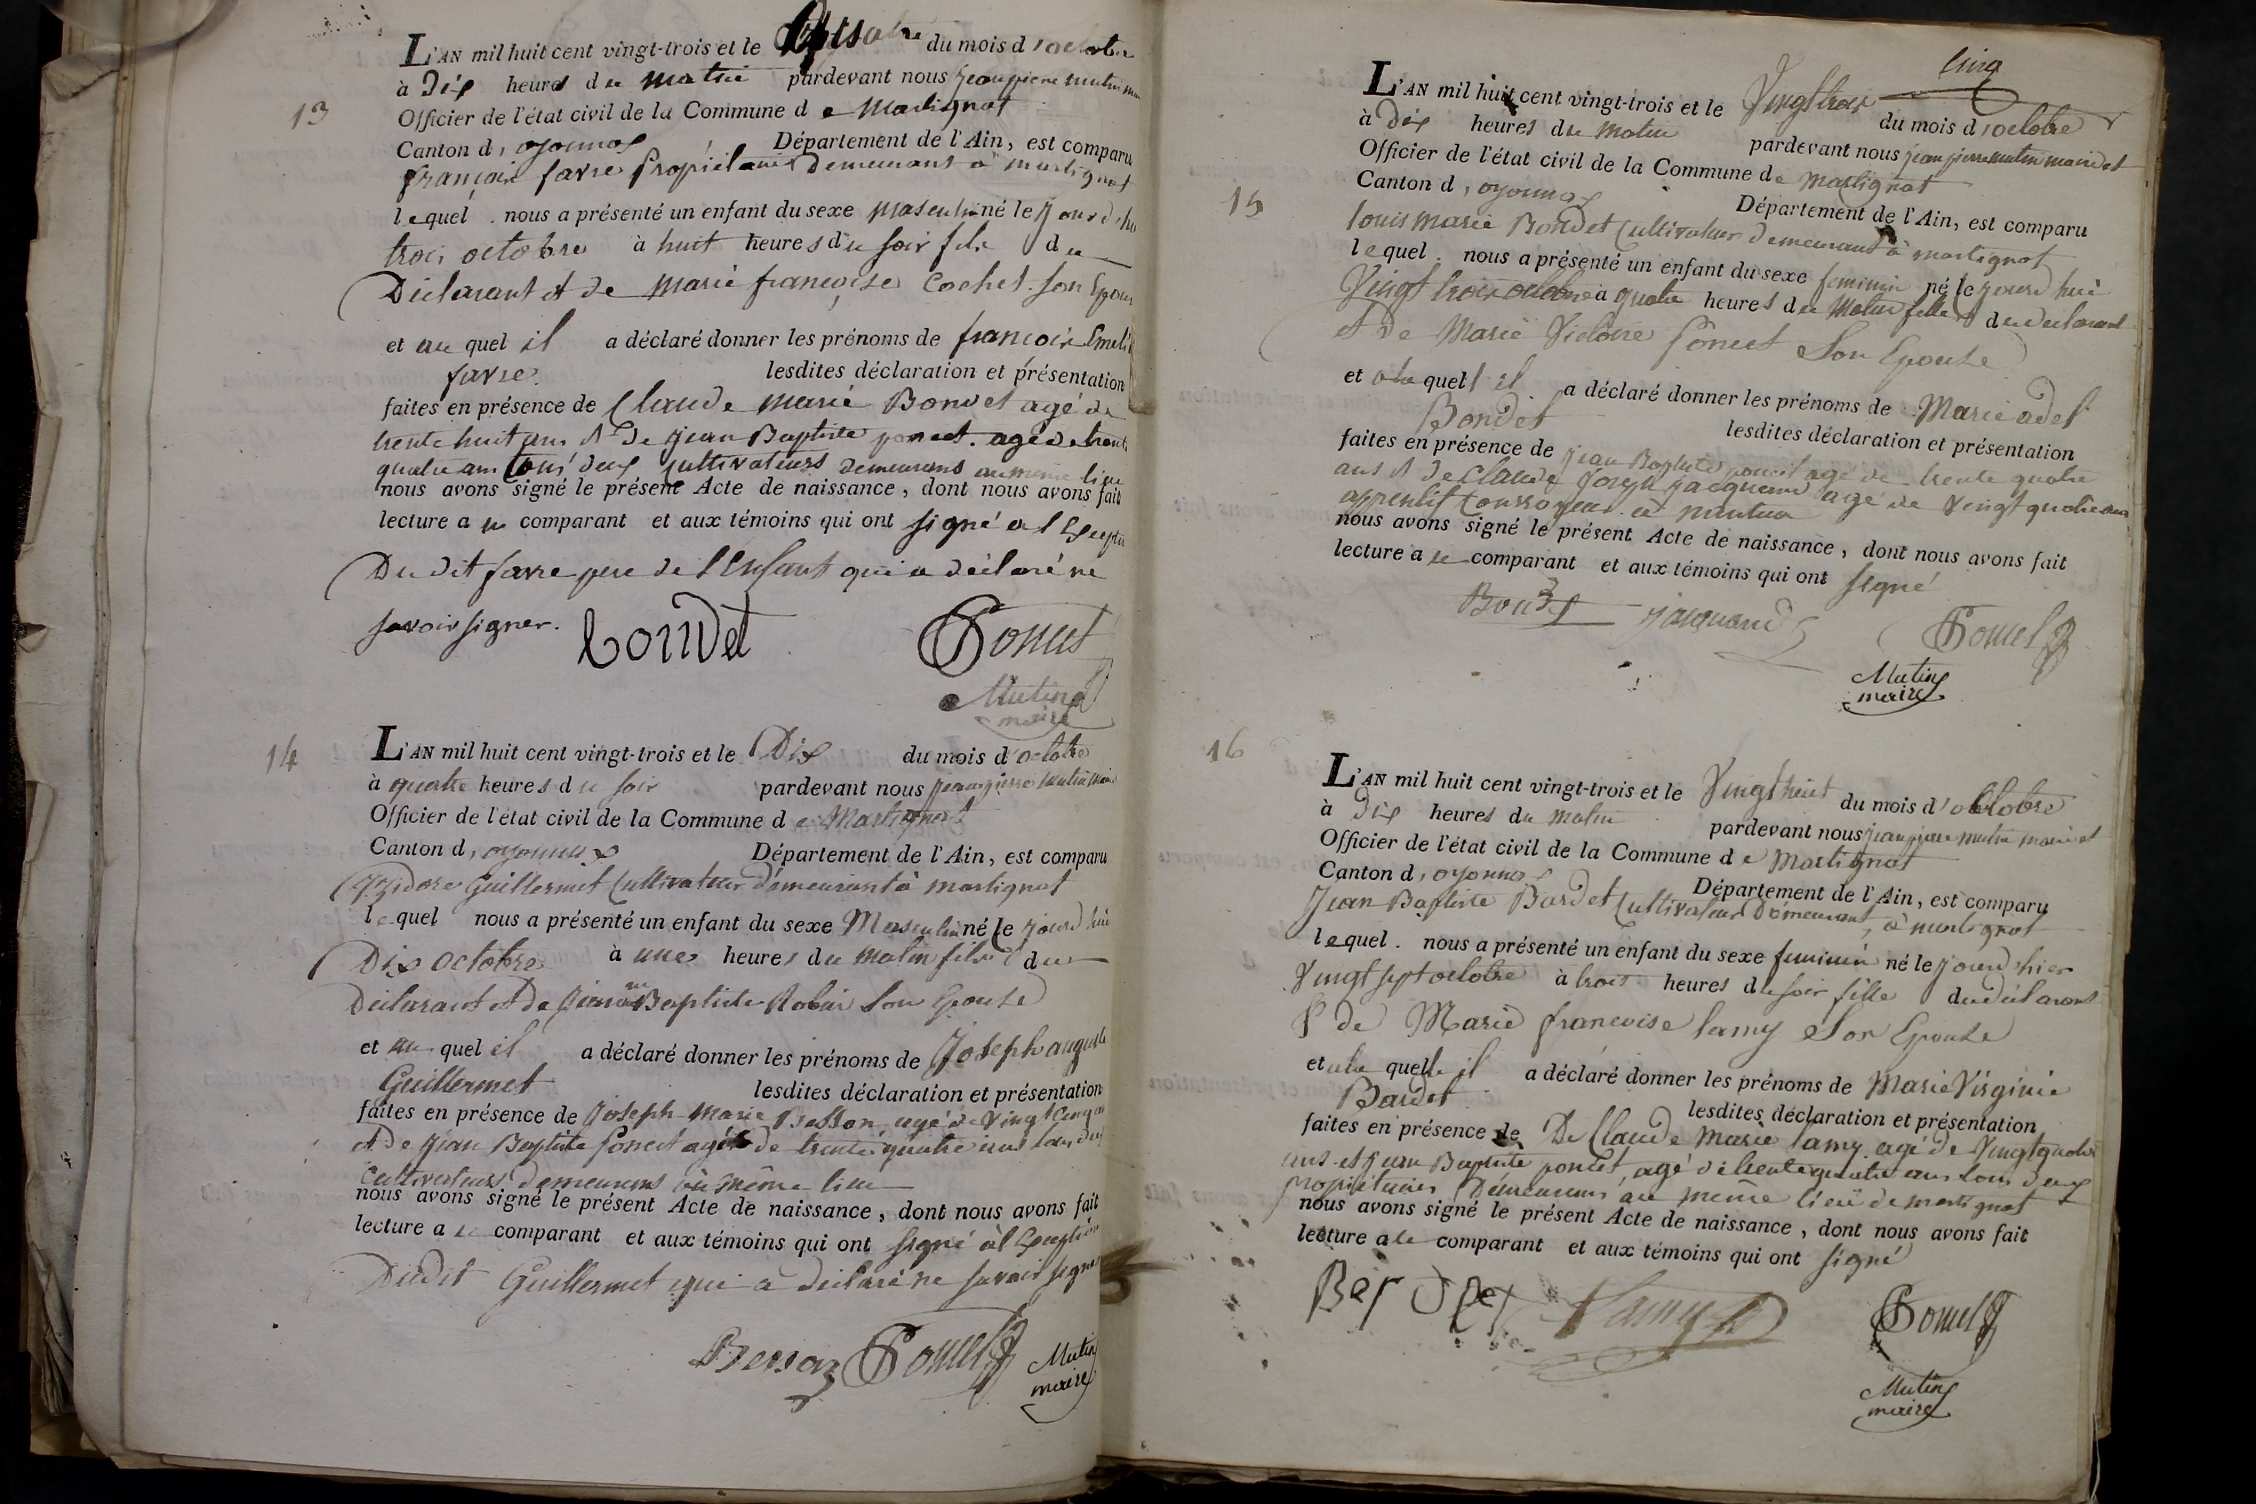 13
L'AN mil huit cent vingt-trois et le quatre du mois d'octobre
à Dix heures du matin pardevant nous jean pierre mutin
Officier de l'état civil de la Commune de Martignat
Canton d'oyonnax Département de l'Ain, est comparu
françois favre Propriétaire demeurant à martignat
lequel nous a présenté un enfant du sexe masculin né le
trois octobre à huit heures du soir fils du
Déclarant et de marie françoise Cochet son Epouse
et au quel il a déclaré donner les prénoms de françois
favre lesdites déclaration et présentation
faites en présence de Claude marie Bondet agé de
trente huit ans et de jean Baptiste poncet agé de trente
quatre ans tous deux Cultivateurs demeurans au même lieu
nous avons signé le présent Acte de naissance, dont nous avons fait
lecture a u comparant et aux témoins qui ont signé a l'Exception
Du dit favre pere de l'Enfant qui a déclaré ne
savoir signer. Bondet Poncet
Mutin
maire
14
L'AN mil huit cent vingt-trois et le Dix du mois d'octobre
à quatre heures du soir pardevant nous jean pierre mutin maire
Officier de l'état civil de la Commune de Martignat
Canton d'oyonnax Département de l'Ain, est comparu
Guillermet Cultivateur demeurant à martignat
lequel nous a présenté un enfant du sexe Masculin né le jourd'hui
Dix octobre à une heures du matin fils du
Déclarant et de Baptiste Robin son Epouse
et au quel il a déclaré donner les prénoms de Joseph auguste
Guillermet lesdites déclaration et présentation
faites en présence de Joseph Marie Besson agé de Vingt Cinq ans
et de jean Baptiste Poncet agé de trente quatre ans tous deux
Cultivateurs demeurans au même lieu
nous avons signé le présent Acte de naissance, dont nous avons fait
lecture a u comparant et aux témoins qui ont signé à l'Exception
Dudit Guillermet qui a déclaré ne savoir signer
Besson Poncet Mutin
maire
15
cinq
L'AN mil huit cent vingt-trois et le Vingt trois du mois d'octobre
à Dix heures du matin pardevant nous jean pierre mutin maire et
Officier de l'état civil de la Commune de Martignat
Canton d'oyonnax Département de l'Ain, est comparu
louis marie Bondet Cultivateur demeurant à martignat
lequel nous a présenté un enfant du sexe feminin né le jourd'hui
Vingt trois octobre à quatre heures du matin fille du declarant
et de Marie Victoire Poncet Son Epouse
et a la quelle il a déclaré donner les prénoms de Marie adel
Bondet lesdites déclaration et présentation
faites en présence de jean Baptiste poncet agé de trente quatre
ans et de Claude Joseph jacquemin agé de Vingt quatre ans
apprentif à nantua
nous avons signé le présent Acte de naissance, dont nous avons fait
lecture a le comparant et aux témoins qui ont signé
Bondet Poncet
Mutin
maire
16
L'AN mil huit cent vingt-trois et le Vingt huit du mois d'octobre
à Dix heures du matin pardevant nous jean pierre mutin maire et
Officier de l'état civil de la Commune de Martignat
Canton d'oyonnax Département de l'Ain, est comparu
Jean Baptiste Bardet Cultivateur Demeurant à martignat
lequel nous a présenté un enfant du sexe feminin né le jourd'hier
Vingt sept octobre à trois heures du soir fille du déclarant
& de Marie francoise lamy Son Epouse
et a la quelle il a déclaré donner les prénoms de Marie Virginie
Bardet lesdites déclaration et présentation
faites en présence de De Claude Marie lamy agé de Vingt quatre
ans et jean Baptiste poncet agé de trente quatre ans tous deux
propriétaires Demeurans au même lieu de martignat
nous avons signé le présent Acte de naissance, dont nous avons fait
lecture a le comparant et aux témoins qui ont signé
Lamy Poncet
Mutin
maire